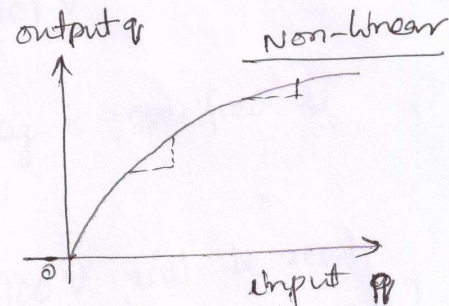 output q
Non-linear
0
input q